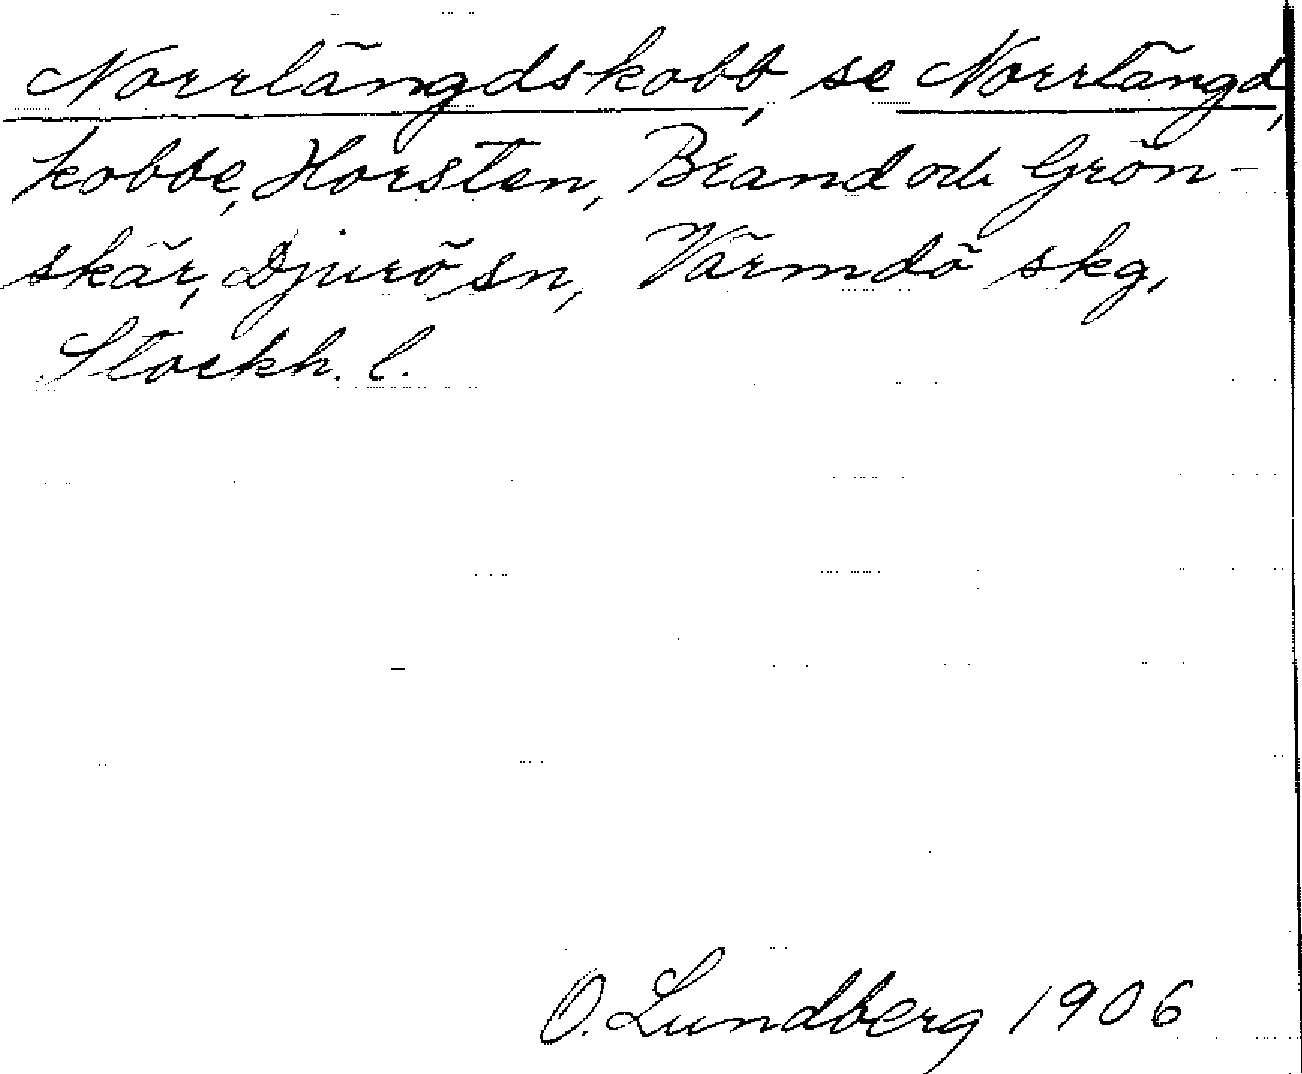 Norrlängdskobb, se Norrlängd,
kobbe, Horsten, Brand och Grön-
skär, Djurö sn, Värmdö skg,
Stockh. l.
O. Lundberg 1906